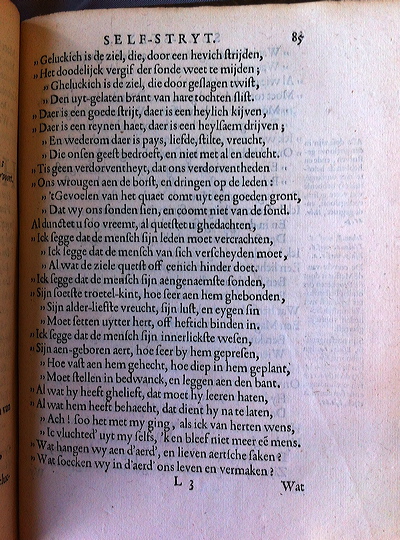 SELF-STRYT. 85
„ Geluckich is de ziel, die, door een hevich strijden,
„ Het doodelijck vergif der sonde weet te mijden ;
„ Gheluckich is de ziel, die door geslagen twist,
„ Den uyt-gelaten brant van hare tochten slist.
„ Daer is een goede strijt, daer is een heylich kijven,
„ Daer is een reynen haet, daer is een heylsaem drijven ;
„ En wederom daer is pays, liefde, stilte, vreucht,
„ Die onsen geest bedroeft, en niet met al en deucht.
„ Tis geen verdorventheyt, dat ons verdorventheden
„ Ons wrougen aen de borst, en dringen op de leden :
„ 'tGevoelen van het quaet comt uyt een goeden gront,
„ Dat wy ons sonden sien, en coomt niet van de sond.
Al dunctet u soo vreemt, al quetstet u ghedachten,
„ Ick segge dat de mensch sijn leden moet vercrachten,
„ Ick segge dat de mensch van sich verscheyden moet,
„ Al wat de ziele quetst off eenich hinder doet.
„ Ick segge dat de mensch sijn aengenaemste sonden,
„ Sijn soetste troetel-kint, hoe seer aen hem ghebonden,
„ Sijn alder-liefste vreucht, sijn lust, en eygen sin
„ Moet setten uytter hert, off heftich binden in.
„ Ick segge dat de mensch sijn innerlickste wesen,
„ Sijn aen-geboren aert, hoe seer by hem gepresen,
„ Hoe vast aen hem gehecht, hoe diep in hem geplant,
„ Moet stellen in bedwanck, en leggen aen den bant.
„ Al wat hy heeft ghelieft, dat moet hy leeren haten,
„ Al wat hem heeft behaecht, dat dient hy na te laten,
„ Ach ! soo het met my ging, als ick van herten wens,
„ Ic vluchted' uyt my selfs, 'ken bleef niet meer eē mens.
„ Wat hangen wy aen d'aerd', en lieven aertsche saken ?
„ Wat soecken wy in d'aerd' ons leven en vermaken ?
L 3 Wat